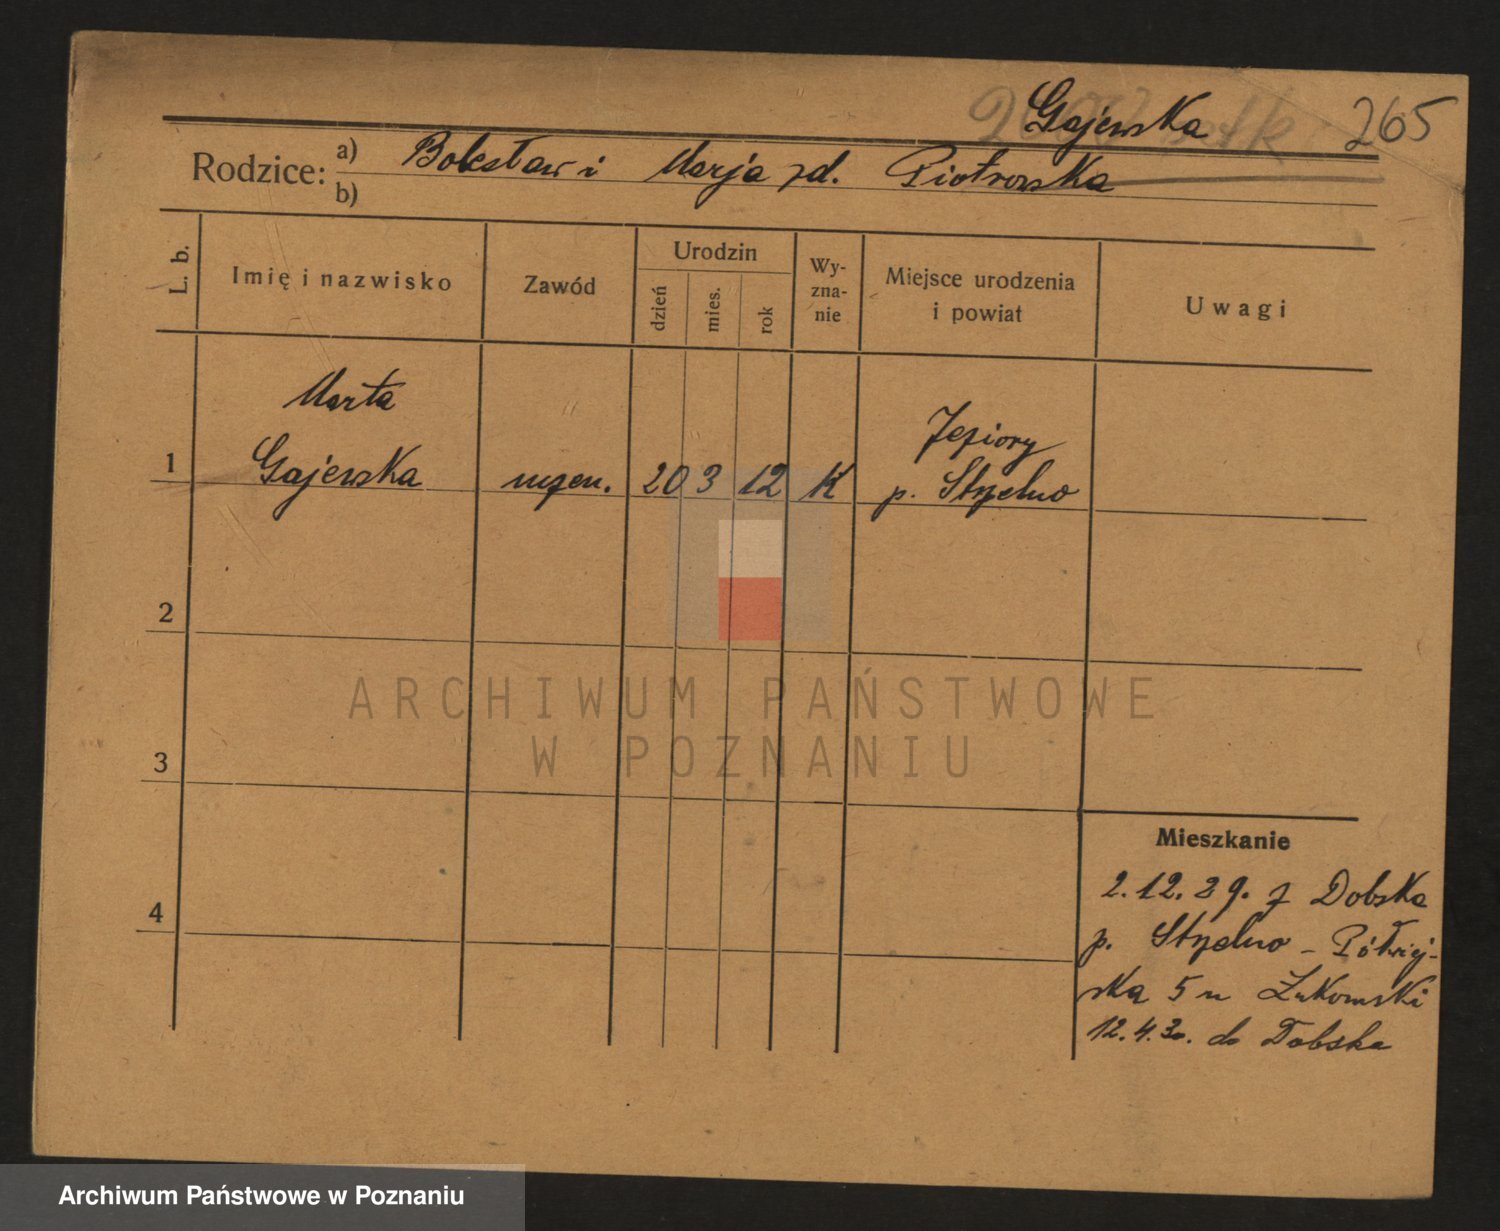 Gajewska 265
Rodzice: a) Bolesław i Marja zd. Piotrowska
b)
L. b. Imię i nazwisko Zawód Urodzin dzień mies. rok Wy-
zna-
nie Miejsce urodzenia
i powiat Uwagi
Marta
1 Gajewska uczen. 20 3 12 K Jeziory
p. Strzelno
2
ARCHIWUM PAŃSTWOWE
W POZNANIU
3
Mieszkanie
4
2.12.29. z Dobska
p. Strzelno - Półwiej-
ska 5 u Żukowski
12.4.30. do Dobska
Archiwum Państwowe w Poznaniu